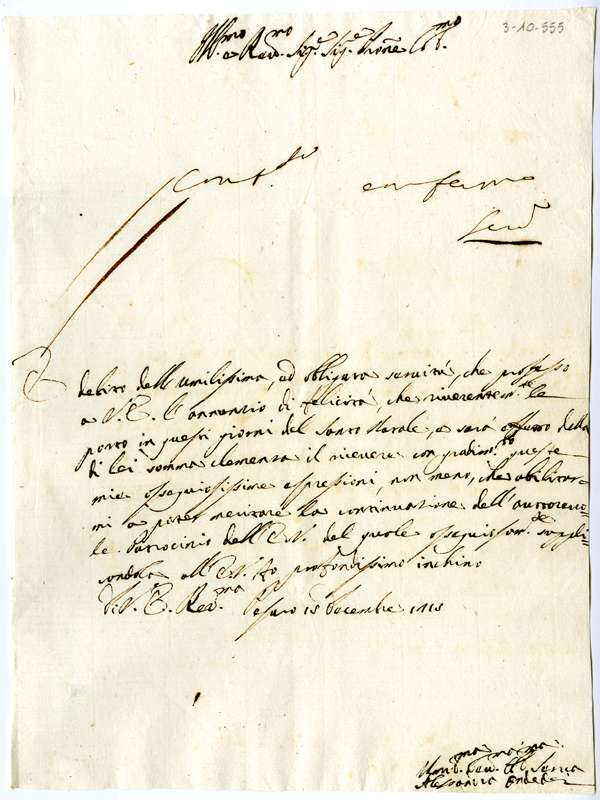 Ill.mo e Rev.mo Sig.e Sig.e Prone Col.mo
3-10-555
debito dell'umilissima, ed obligata servitù, che professo
a V.E. è l'annuntio di felicità, che riverentem.te le
porto in questi giorni del Santo Natale, e sarà effetto della
di lei somma clemenza il ricevere con gradim.to queste
mie ossequiosissime espressioni, non meno, che abilitar=
mi a poter meritare la continuatione dell'autorevo=
le Patrocinio dell'E.V. del quale ossequiosam.te suppli=
condola all'E.V. fo profondissimo inchino
Di V.E. Rev.ma Pesaro 15 Decembre 1715
Um.ma Dev.ma Obl.ma Serva
Alessandra